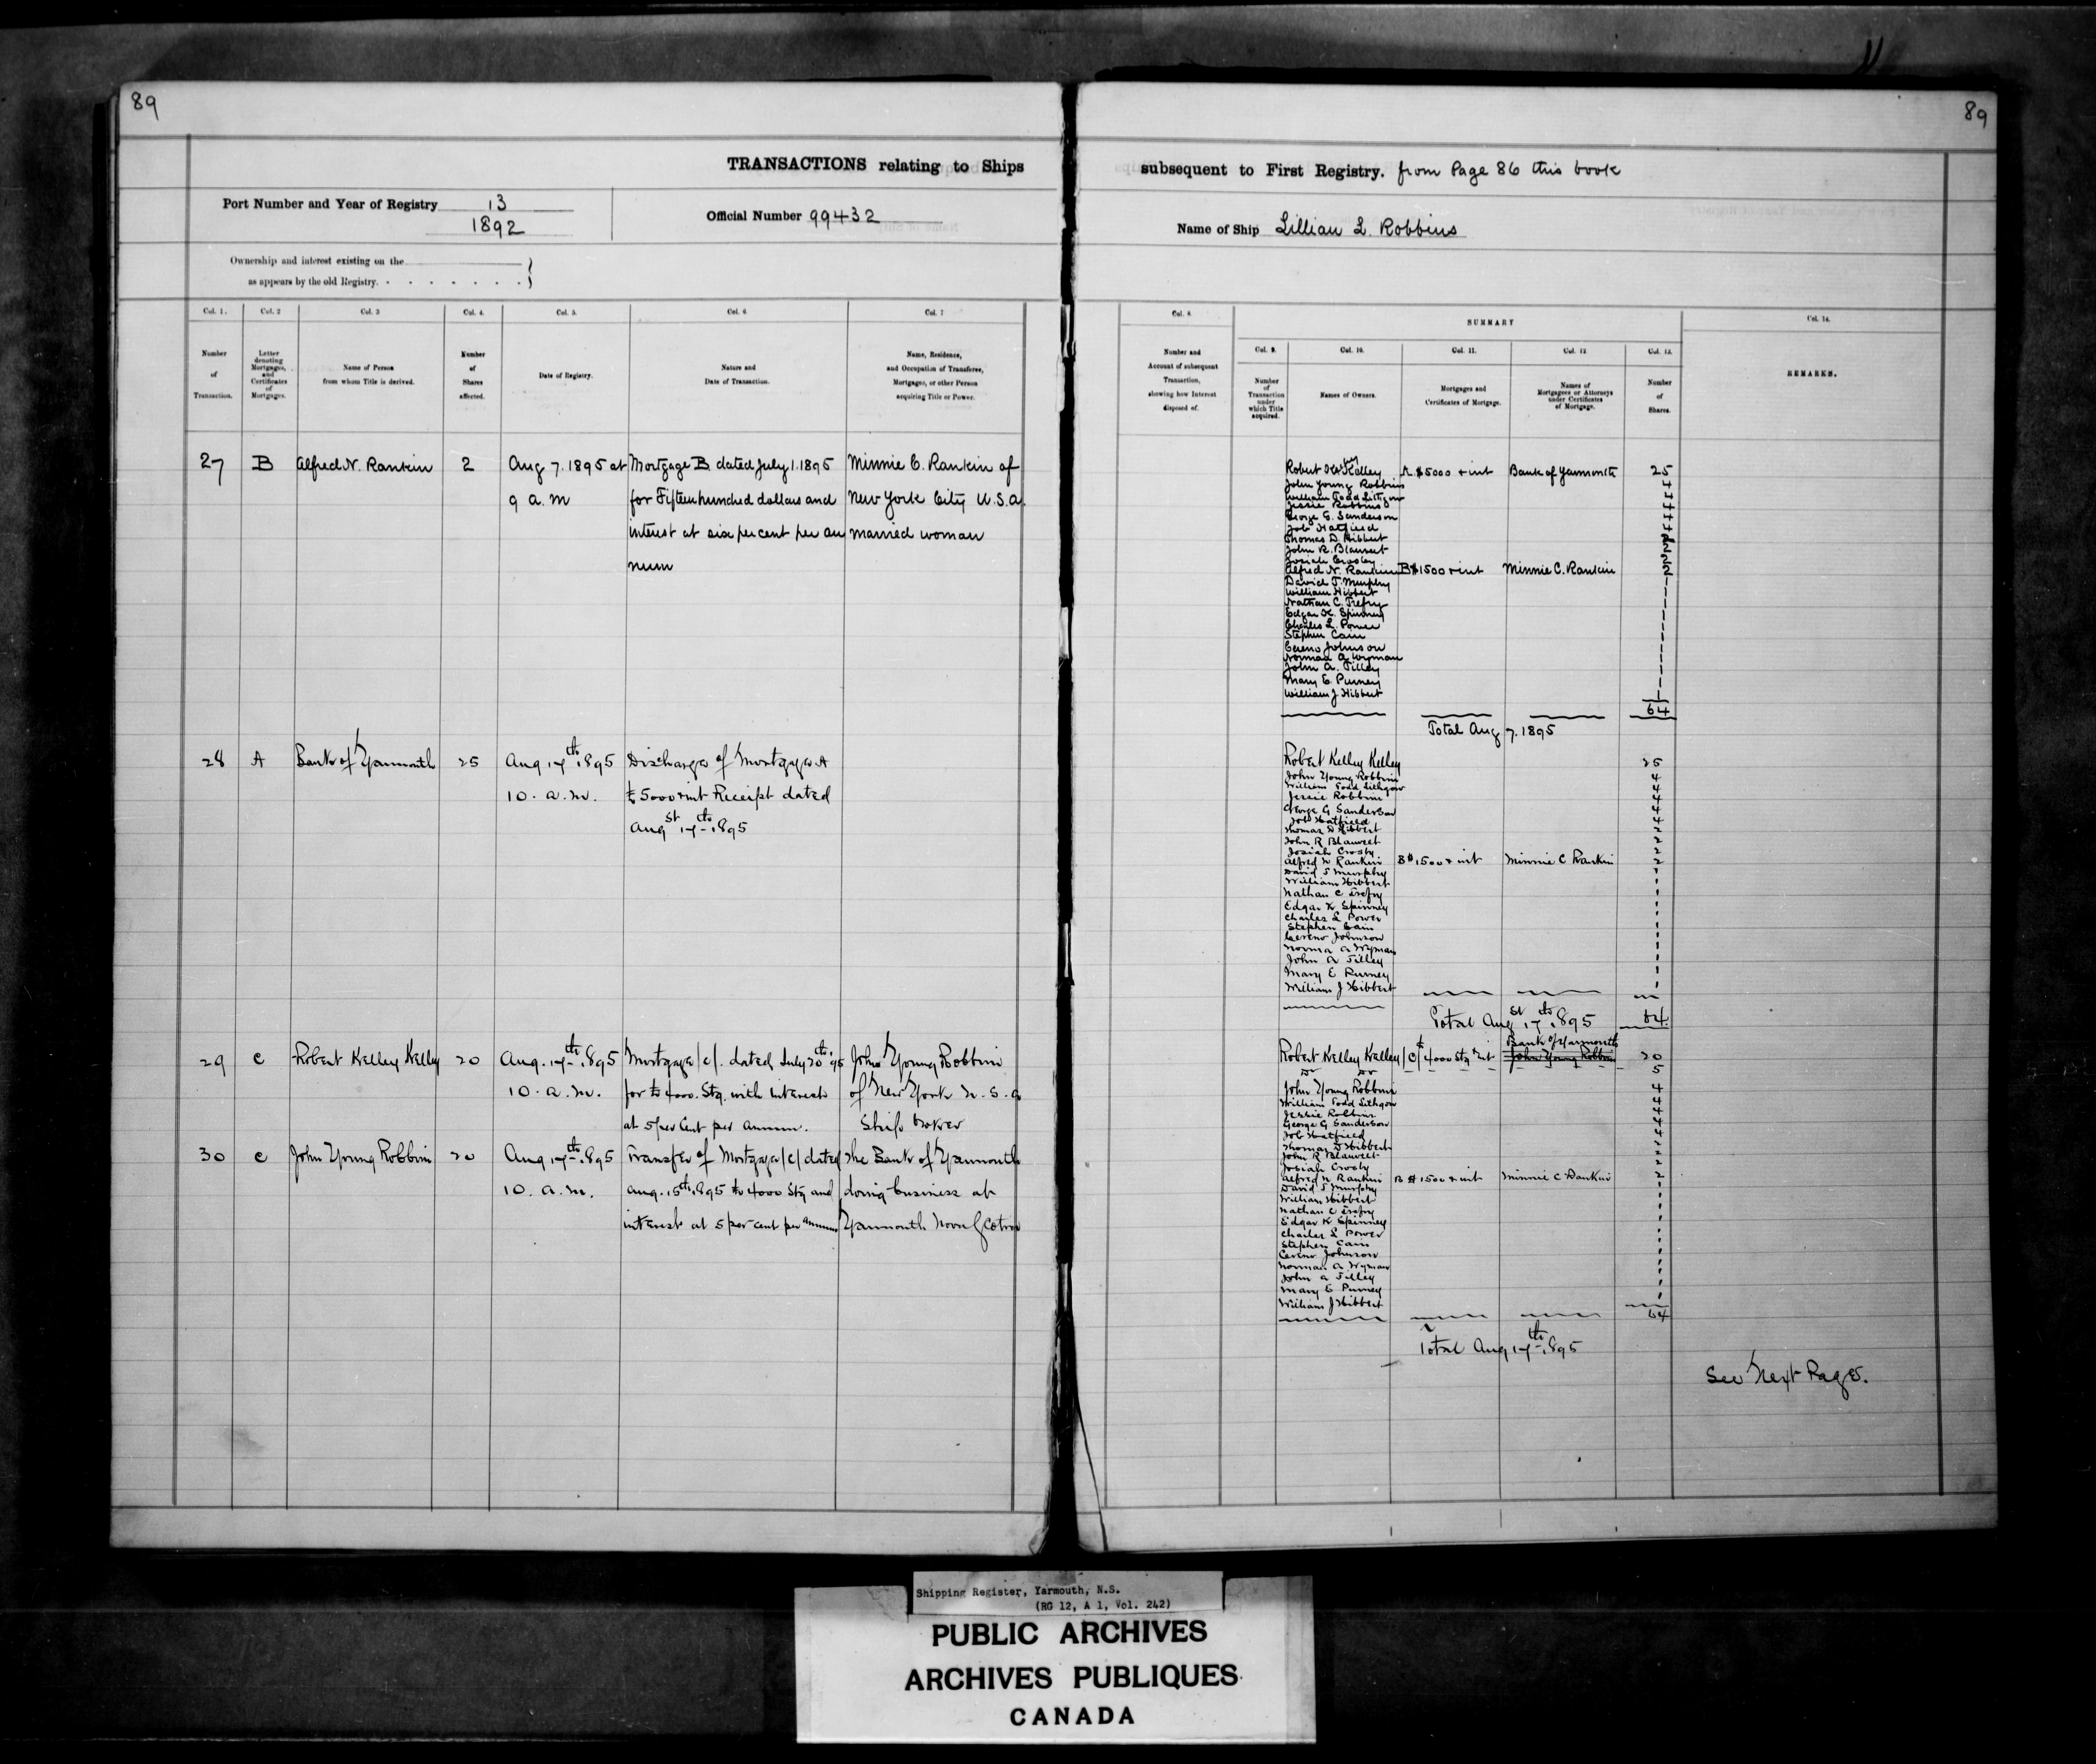 89
TRANSACTIONS relating to Ships
Port Number and Year of Registry 13
1892
Official Number 99432
Ownership and interest existing on the
as appears by the old Registry.
Col. 1.
Col. 2
Col. 3
Col. 4.
Col. 5.
Col. 6
Col. 7
Number
of
Transaction.
Letter
denoting
Mortgages,
and
Certificates
of
Mortgages.
Name of Person
from whom Title is derived.
Number
of
Shares
affected.
Date of Registry.
Nature and
Date of Transaction.
Name, Residence,
and Occupation of Transferee,
Mortgagee, or other Person
acquiring Title or Power.
27 B Alfred N. Rankin 2 Aug 7. 1895 at Mortgage B dated July 1. 1895 Minnie C. Rankin of
9 a.m for Fifteen hundred dollars and New York City U.S.a.
interest at six per cent per an married woman
num
28 A Bank of Yarmouth 25 Aug 17th 1895 Discharge of Mortgage A
10. a.m. $5000 & int Receipt dated
Augst 17th 1895
29 C Robert Kelley Kelley 20 Aug. 17th 1895 Mortgage /C/. dated July 20th '95 John Young Robbins
10. a.m. for £4000. Stg. with interest of New York U.S.a
at 5 per Cent per annum. Ship broker
30 C John Young Robbins 20 Aug 17th 1895 Transfer of Mortgage /C/ dated The Bank of Yarmouth
10. a.m. Aug. 15th 1895 £4000 Stg and doing business at
interest at 5 per cent per annum Yarmouth Nova Scotia
89
subsequent to First Registry. from Page 86 this book
Name of Ship Lillian L. Robbins
Col. 8.
SUMMARY
Col. 14.
Col. 9.
Col. 10.
Col. 11.
Col. 12.
Col. 13.
Number and
Account of subsequent
Transaction,
showing how Interest
disposed of.
Number
of
Transaction
under
which Title
acquired.
Names of Owners.
Mortgages and
Certificates of Mortgage.
Names of
Mortgagees or Attorneys
under Certificates
of Mortgage.
Number
of
Shares.
REMARKS.
Robert Kelley A $5000 & int Bank of Yarmouth 25
John Young Robbins 4
William Todd Lithgow 4
Jessie Robbins 4
George G. Sanderson 4
Job Hatfield 4
Thomas D. Hibbert 2
John R. Blauvelt 2
Josiah Crosby 2
Alfred N. Rankin B $1500 & int Minnie C. Rankin 2
David J Murphy 1
William Hibbert 1
Nathan C. Trefry 1
Edgar K. Spinney 1
Charles L. Power 1
Stephen Cain 1
Cereno Johnson 1
Norman A Wyman 1
John A. Tilley 1
Mary E Purney 1
William J Hibbert 1
64
Total Aug 7. 1895
Robert Kelley Kelley 25
John Young Robbins 4
William Todd Lithgow 4
Jessie Robbins 4
George G Sanderson 4
Job Hatfield 4
Thomas D Hibbert 2
John R Blauvelt 2
Josiah Crosby 2
Alfred N Rankin B $1500 & int Minnie C Rankin 2
David J Murphy 1
William Hibbert 1
Nathan C Trefry 1
Edgar K Spinney 1
Charles L Power 1
Stephen Cain 1
Cereno Johnson 1
Norman A Wyman 1
John A Tilley 1
Mary E Purney 1
William J Hibbert 1
Total Augst 17th 1895 64
Bank of Yarmouth
Robert Kelley Kelley /C/ £4000 Stg & int John Young Robbins 20
Do Do 5
John Young Robbins 4
William Todd Lithgow 4
Jessie Robbins 4
George G Sanderson 4
Job Hatfield 4
Thomas D Hibbert 2
John R Blauvelt 2
Josiah Crosby 2
Alfred N Rankin B $1500 & int Minnie C Rankin 2
David J Murphy 1
William Hibbert 1
Nathan C Trefry 1
Edgar K Spinney 1
Charles L Power 1
Stephen Cain 1
Cereno Johnson 1
Norman A Wyman 1
John A Tilley 1
Mary E Purney 1
William J Hibbert 1
64
Total Aug 17th 1895
See Next Page.
Shipping Register, Yarmouth, N.S.
(RG 12, A 1, Vol. 242)
PUBLIC ARCHIVES
ARCHIVES PUBLIQUES
CANADA